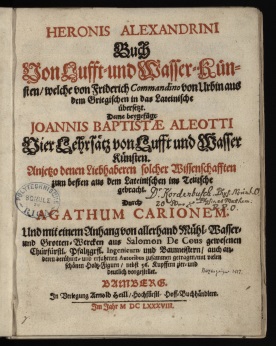 HERONIS ALEXANDRINI
Buch
Von Lufft- und Wasser-Kün-
sten / welche von Friderich Commandino von Urbin aus
dem Griegischen in das Lateinische
übersetzt.
Deme beygefügt
JOANNIS BAPTISTÆ ALEOTTI
Vier Lehrsätz von Lufft und Wasser
Künsten.
Anjetzo denen Liebhabern solcher Wissenschafften
zum besten aus dem Lateinischen ins Teutsche
gebracht.
Durch
AGATHUM CARIONEM.
Und mit einem Anhang von allerhand Mühl-Wasser-
und Grotten-Wercken aus Salomon De Cous gewesenen
Churfürstl. Pfaltzgrfl. Ingenieuren und Baumeistern / auch an-
dern berühmt- und erfahrnen Autoribus zusammen getragen / mit vielen
schönen Holtz-Figuren / nebst 36. Kupffern zier- und
deutlich vorgestellet.
BAMBERG.
In Verlegung Arnold Heill / Hochfürstl. Hoff-Buchhändlers.
Im Jahr M DC LXXXVIII.